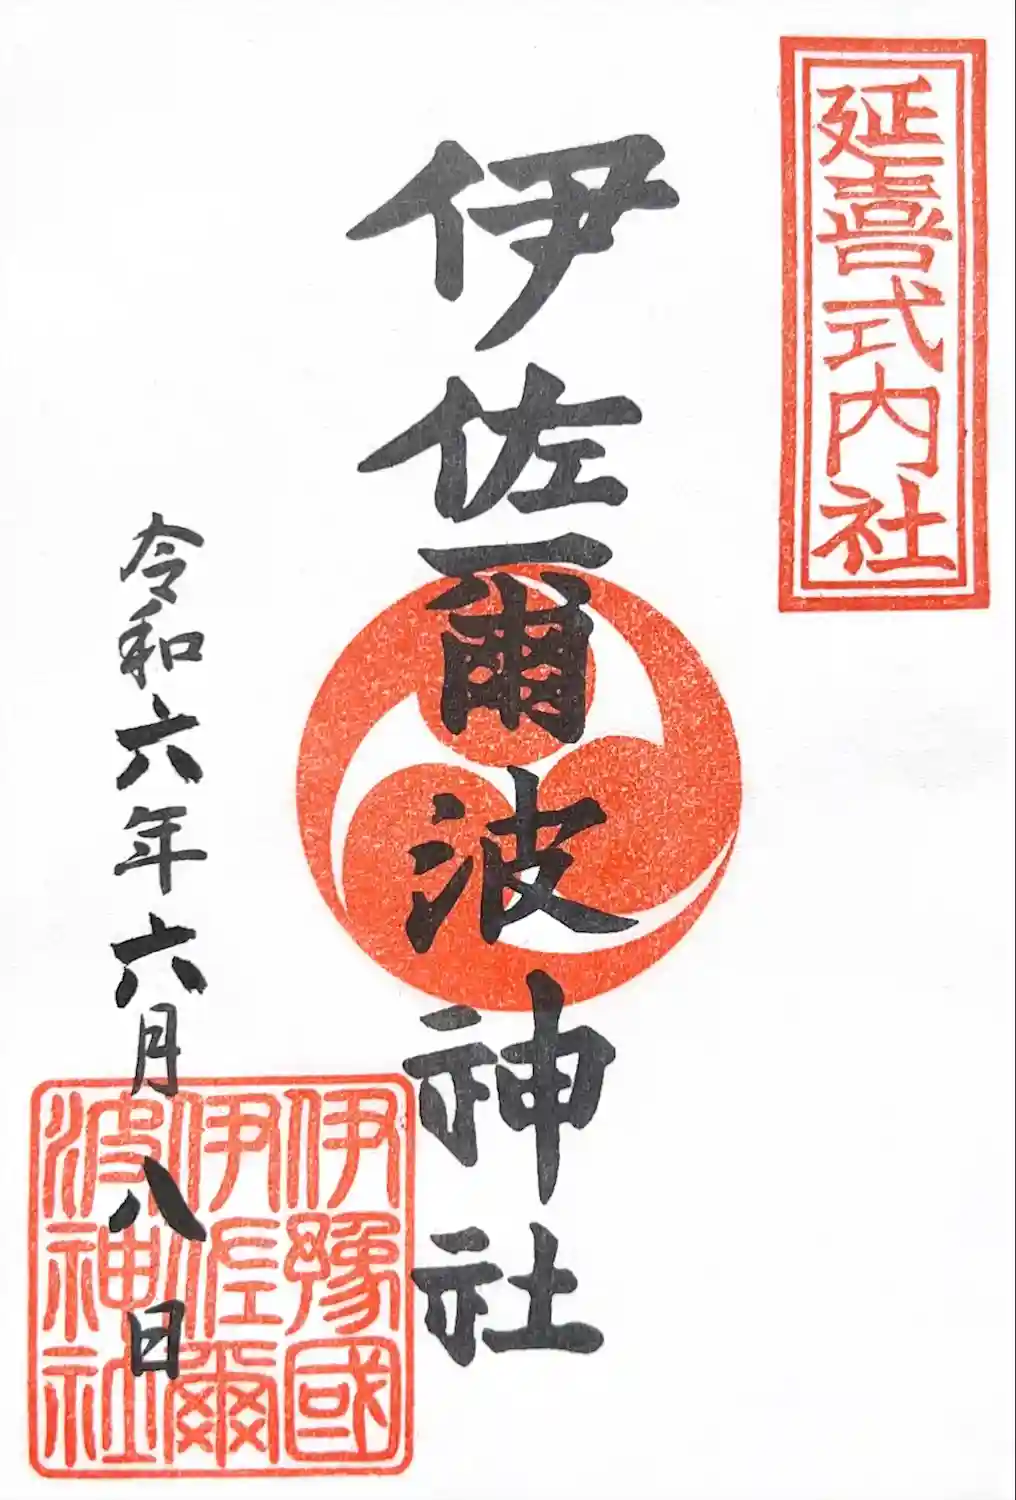 延喜式内社
伊佐爾波神社
令和六年六月八日
伊豫國
伊佐爾
波神社